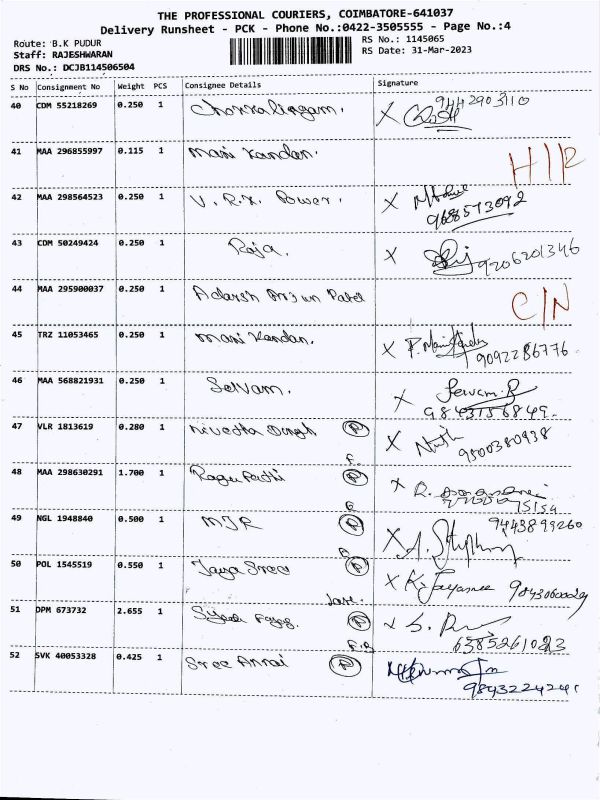 THE PROFESSIONAL COURIERS, COIMBATORE-641037
Delivery Runsheet - PCK - Phone No.:0422-3505555 - Page No.:4
Route: B.K PUDUR RS No.: 1145065
Staff: RAJESHWARAN RS Date: 31-Mar-2023
DRS No.: DCJB114506504
S No Consignment No Weight PCS Consignee Details Signature
40 CDM 55218269 0.250 1 Chokkalingam. X 9442903110
41 MAA 296855997 0.115 1 Mani Kandan. H/R
42 MAA 298564523 0.250 1 V. R. X. Power. X 9688573092
43 CDM 50249424 0.250 1 Raja. X 9206201346
44 MAA 295900037 0.250 1 Adarsh Arjun Patel C/N
45 TRZ 11053465 0.250 1 Mani Kandan. X P. 9092286776
46 MAA 568821931 0.250 1 Selvam. X Selvam. R
9843156849.
47 VLR 1813619 0.280 1 Nivedha Singh P X 9500380938
F.
48 MAA 298630291 1.700 1 P X R.
49 NGL 1948840 0.500 1 MJR P 9443899260
X A. Stephen
50 POL 1545519 0.550 1 Jaya Sree P X K. Jayasree 9843060029
51 DPM 673732 2.655 1 P S.
F.B 6385261023
52 SVK 40053328 0.425 1 Sree Annai P
9843224241